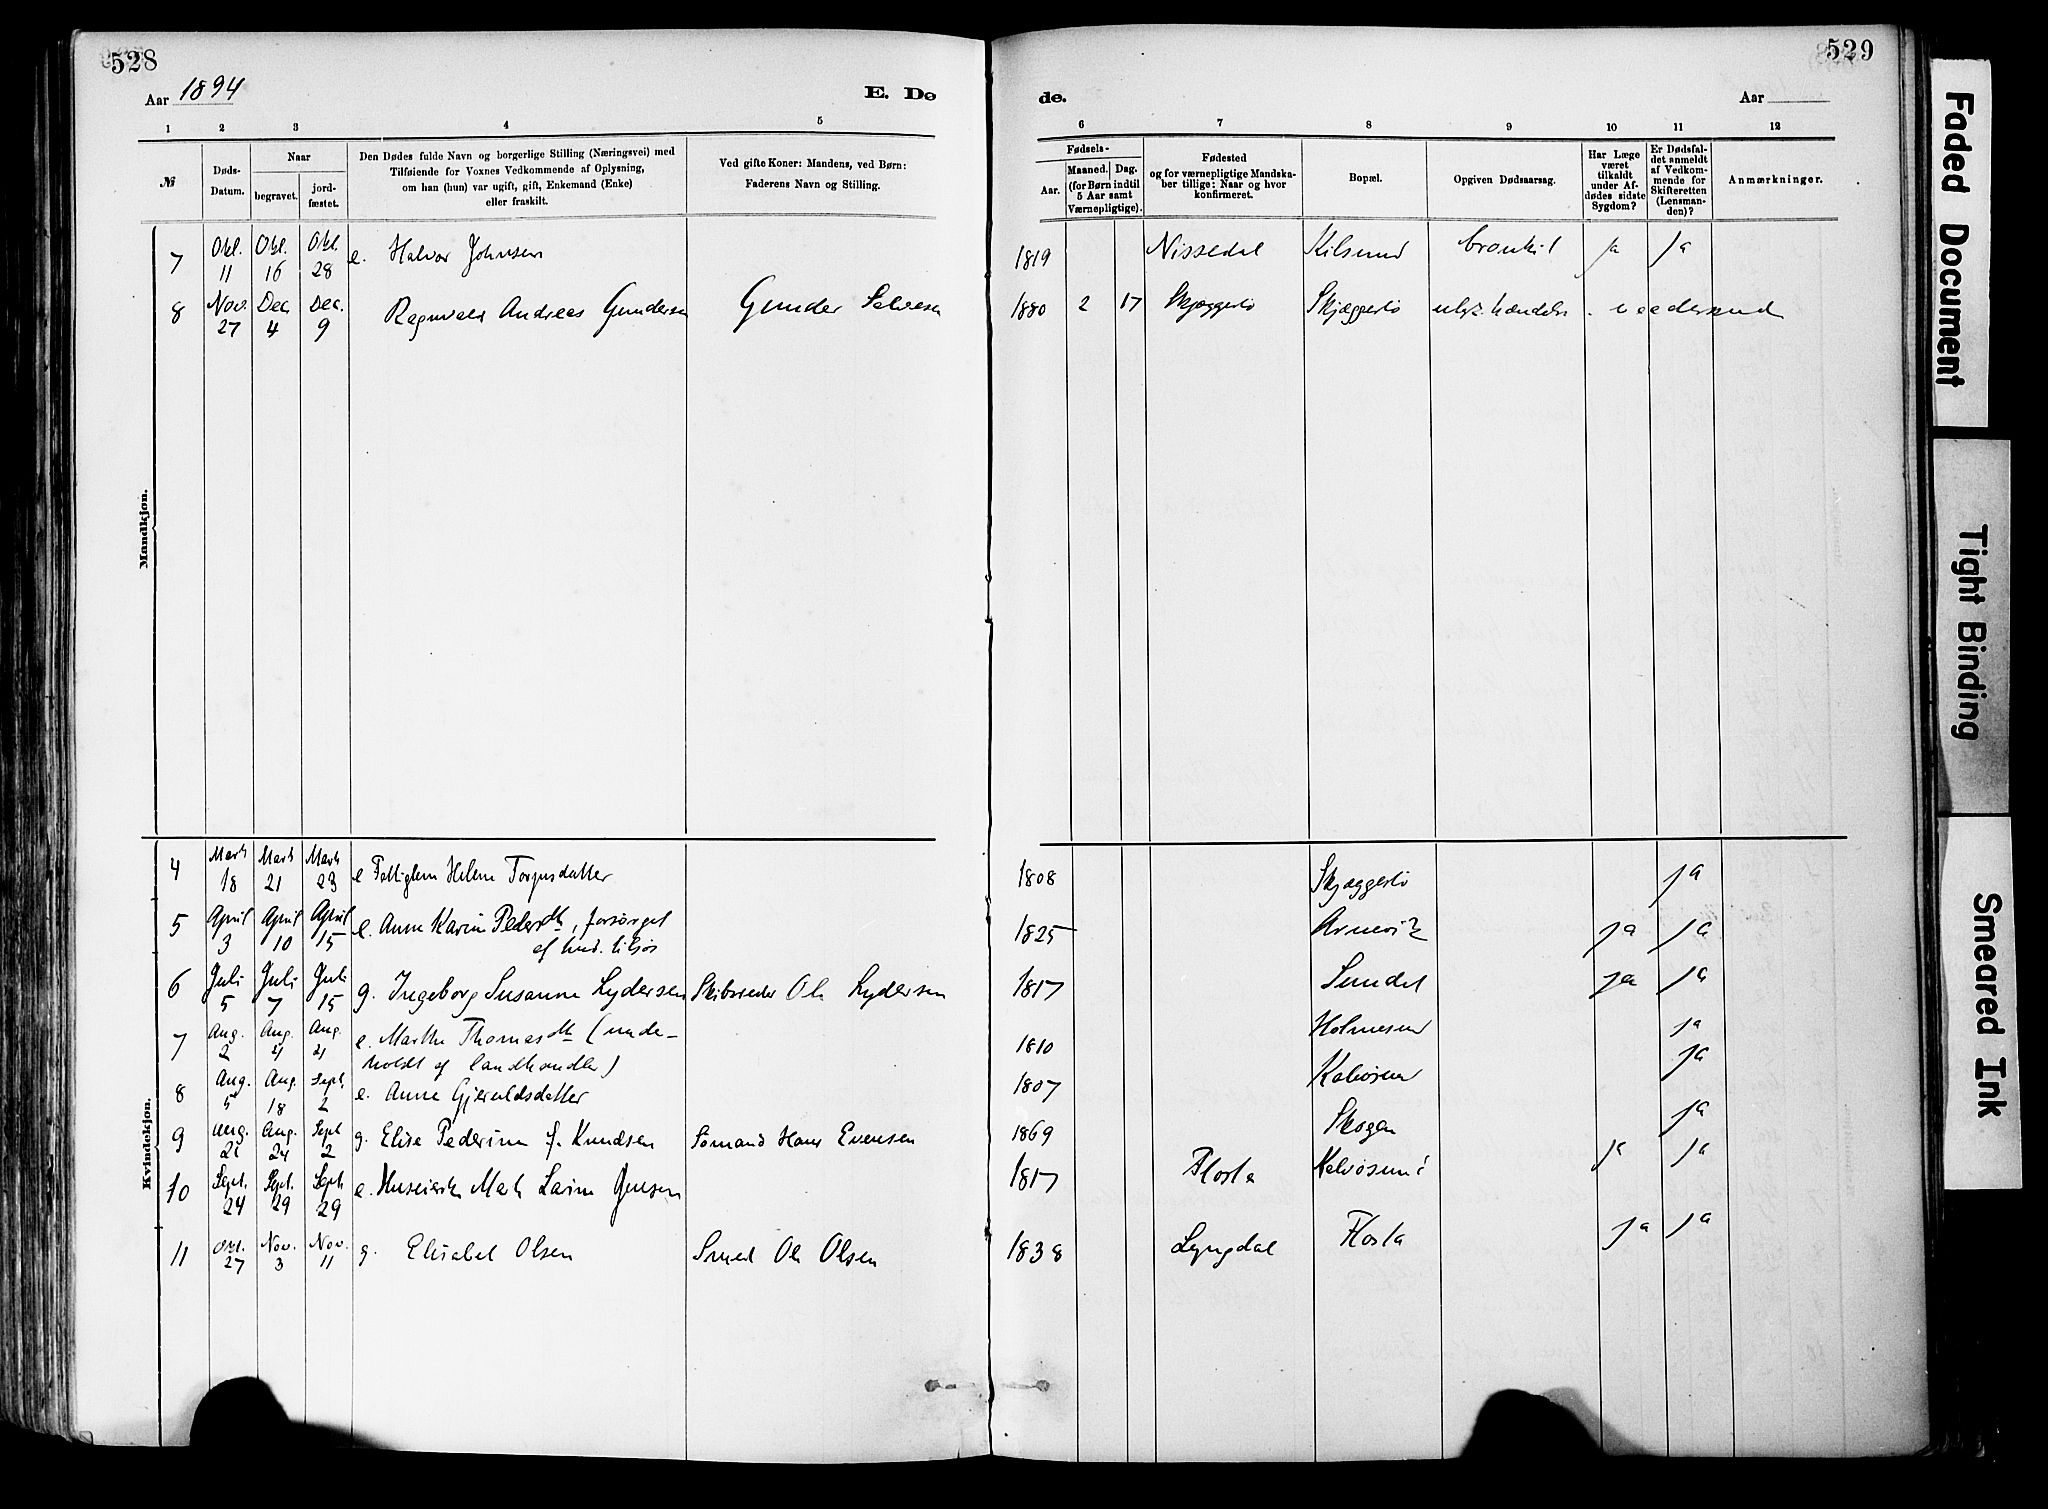 528
Aar 1894
E. Dø
1 2 3 4 5
№
Døds-
Datum.
Naar
begravet.
jord-
fæstet.
Den Dødes fulde Navn og borgerlige Stilling (Næringsvei) med
Tilføiende for Voxnes Vedkommende af Oplysning,
om han (hun) var ugift, gift, Enkemand (Enke)
eller fraskilt.
Ved gifte Koner: Mandens, ved Børn:
Faderens Navn og Stilling.
Mandkjøn.
7 Okt. 11 Okt. 16 Okt. 28 e. Halvor Johnsen
8 Nov. 27 Dec. 4 Dec. 9 Ragnvald Andreas Gundersen Gunder Salvesen
Kvindekjøn.
4 Marts 18 Marts 21 Marts 23 e Helene Torjusdatter
5 April 3 April 10 April 15 e. Anne Karine Pedersdtr, forsørget
af
6 Juli 5 Juli 7 Juli 15 g. Ingeborg Susanne Lydersen Skibsreder Ole Lydersen
7 Aug. 2 Aug. 4 Aug. 4 e. Marthe Thomasdtr (unde-
holdt af landhandler)
8 Aug. 5 Aug. 18 Sept. 2 e. Anne Gjeruldsdatter
9 Aug. Aug. 24 Sept 2 g. Elise Pederine f. Knudsen Sømand Hans Evensen
10 Sept. 24 Sept. 29 Sept 29 e. Maren Larine Jensen
11 Okt. 27 Nov. 3 Nov. 11 g. Elisabet Olsen Smed Ole Olsen
529
de.
Aar
6 7 8 9 10 11 12
Fødsels-
Aar.
Maaned. Dag.
(for Børn indtil
5 Aar samt
Værnepligtige).
Fødested
og for værnepligtige Mandska-
ber tillige: Naar og hvor
konfirmeret.
Bopæl.
Opgiven Dødsaarsag.
Har Læge
været
tilkaldt
under Af-
dødes sidste
Sygdom?
Er Dødsfal-
det anmeldt
af Vedkom-
mende for
Skifteretten
(Lensman-
den)?
Anmærkninger.
1819 Nissedal Kilsund bronkit ja ja
1880 2 17 Skjæggestø Skjæggestø ulyk. hændelse
1808 Skjæggestø ja
1825 Arnevik ja ja
1817 Sundet ja ja
1810 Holmesund ja
1807 Kalvøsund ja
1869 Skogen ja
1817 Flosta Kalvøsund ja ja
1838 Lyngdal Flosta ja ja
Faded Document
Tight Binding
Smeared Ink